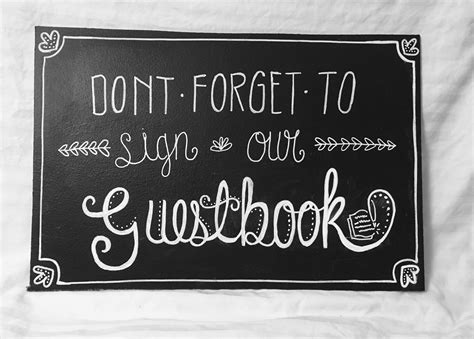 DONT · FORGET · TO
sign our
Guestbook